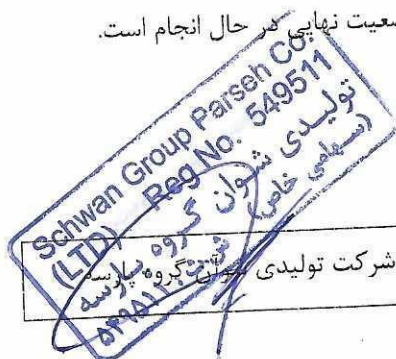 وضعیت نهایی در حال انجام است.
Schwan Group Parseh Co.
(LTD) Reg No. 549511
تولیدی شوان گروه پارسه
(سهامی خاص)
ثبت: ۵۴۹۵۱۱
شرکت تولیدی شوان گروه پارسه